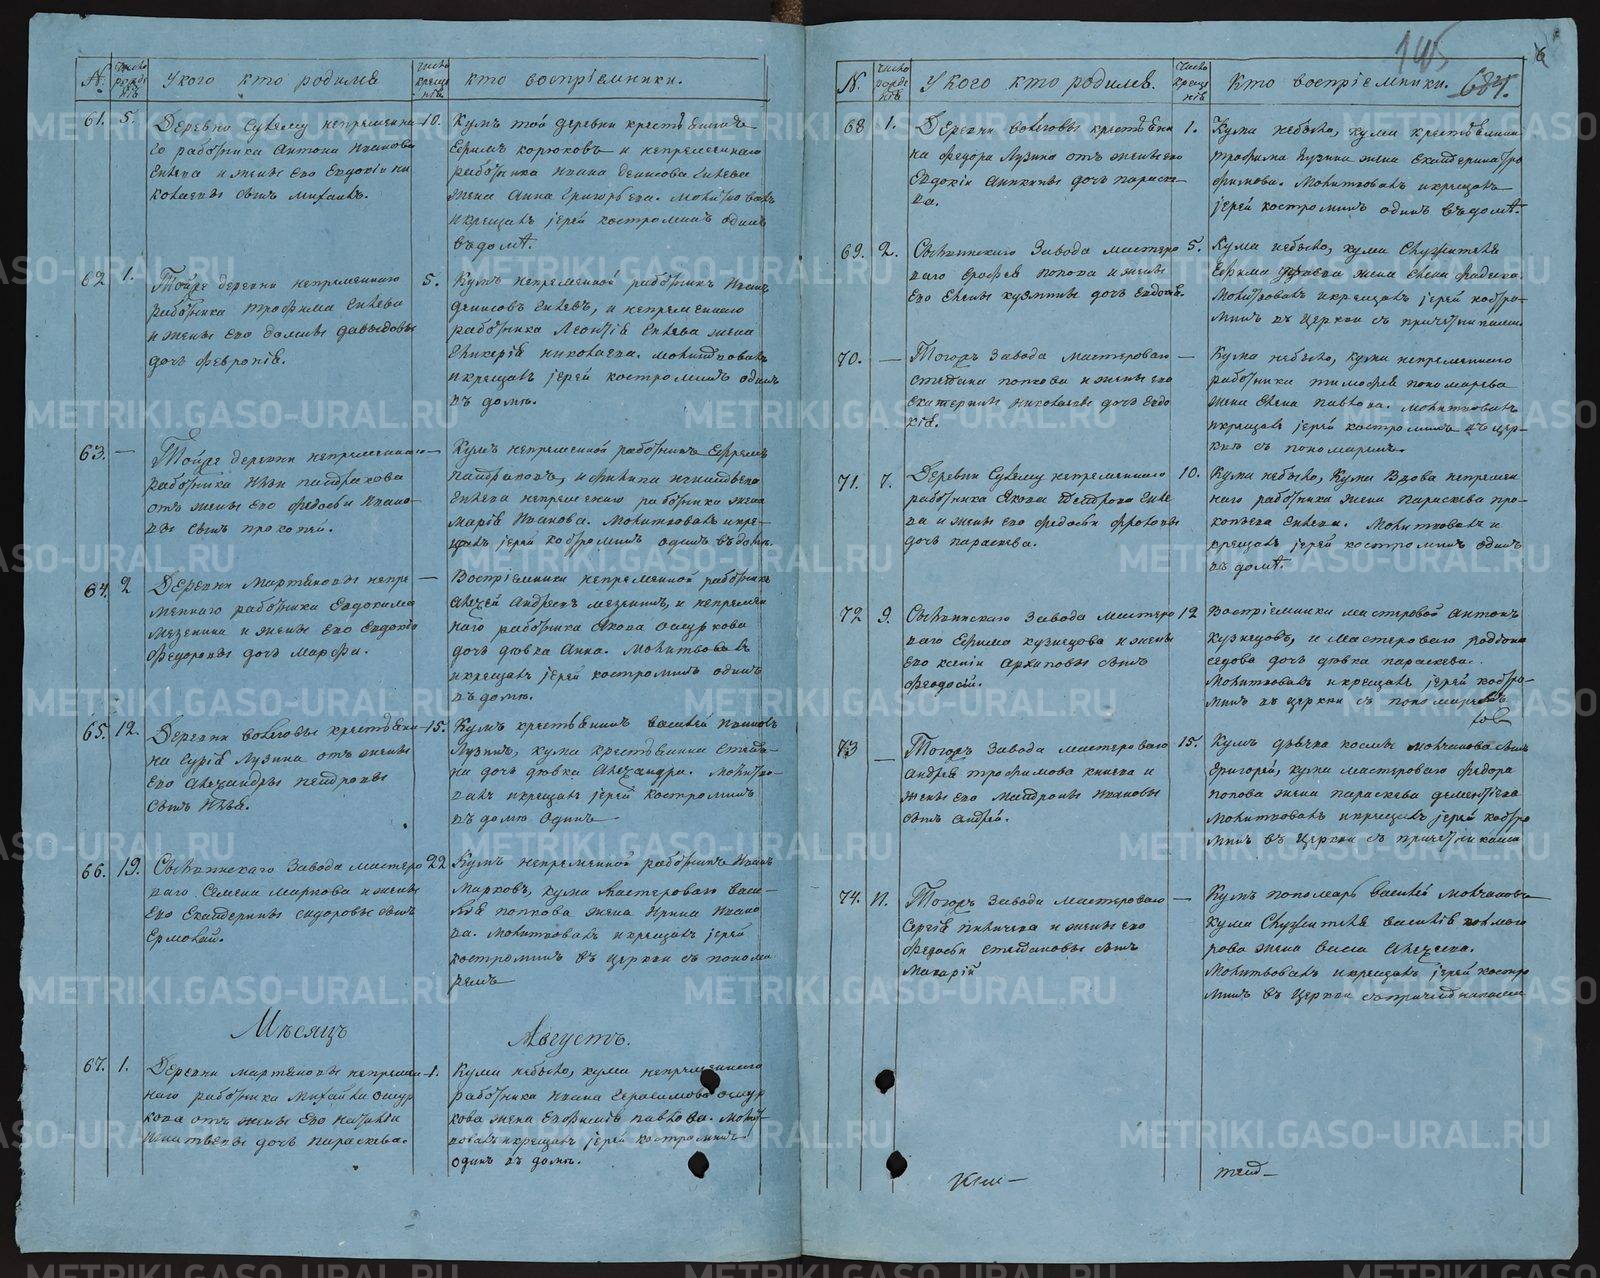 №.
число рожденія
У кого кто родился
число крещенія.
кто воспріемники.
61. 5. Деревни непременна-
го работника Антона Иванова
и жены его Евдокіи Ни
колаевы сынъ Михаилъ.
10. Кумъ той деревни крестьянинъ
Ефимъ и непременнаго
работника Ивана Денисова
жена Анна Григорьева. Молитвовалъ
и крещалъ іерей Костроминъ одинъ
въ домѣ.
62 1. Тойже деревни непременнаго
работника Трофима
и жены его Домны Давыдовы
дочь Февронія.
5. Кумъ непременной работникъ Иванъ
Денисовъ, и непременнаго
работника Леонтія жена
Гликерія Николаева. Молитвовалъ
и крещалъ іерей Костроминъ одинъ
въ домѣ.
63. — Тойже деревни непременнаго
работника
отъ жены его Федосьи Ивано-
вы сынъ Прокопей.
— Кумъ непременной работникъ Ефремъ
непременнаго работника жена
Марія Иванова. Молитвовалъ и кре-
щалъ іерей Костроминъ одинъ въ домѣ.
64. 2 Деревни Мартяновы непре-
меннаго работника Евдокима
Мезенина и жены его Евдокіи
Федоровы дочь Марфа.
— Воспріемники непременной работникъ
Андреевъ Мезенинъ, и непремен
наго работника Якова Ошуркова
дочь дѣвка Анна. Молитвовалъ
и крещалъ іерей Костроминъ одинъ
въ домѣ.
65. 12. Деревни Волеговы крестьяни-
на Гурія Лузина отъ жены
его Александры
сынъ Илья.
15. Кумъ крестьянинъ Василей Ивановъ
Лузинъ, кума крестьянина Степа-
на дочь дѣвка Александра. Молитво-
валъ и крещалъ іерей Костроминъ
въ домѣ одинъ
66. 19. завода мастеро
ваго Семена Маркова и жены
его Екатерины Сидоровы сынъ
Ермолай.
22 Кумъ непременной работникъ Иванъ
Марковъ, кума мастероваго Васи-
лья Попкова жена Ирина Ивано
ва. Молитвовалъ и крещалъ іерей
Костроминъ въ церкви съ понома
ремъ
Мѣсяцъ
Августъ.
67. 1. Деревни Мартяновы непремен
наго работника Михайла Ошур
кова отъ жены его Наталіи
дочь Параскева.
1. Кума небыло, кума непременнаго
работника Ивана Герасимова Ошур
кова жена Ефросинія Павлова. Молит
вовалъ и крещалъ іерей Костроминъ
одинъ въ домѣ.
6
145
684.
N.
число рожденія
У кого кто родился.
число крещенія
Кто воспріемники.
68 1. Деревни Волеговы крестьяни
на Федора Лузина отъ жены его
Евдокіи Аникины дочь Параске-
ва.
1. Кума небыло, кума крестьянина
Трофима Лузина жена Екатерина Тро
фимова. Молитвовалъ и крещалъ
іерей Костроминъ одинъ въ домѣ.
69. 2. завода мастеро
ваго Ерофея Попова и жены
его Елены Кузмины дочь Евдокія.
5. Кума небыло, кума служителя
Ефима жена Елена
Молитвовалъ и крещалъ іерей Костро-
минъ въ церкви съ причетниками.
70. — Тогожъ завода мастероваго
Степана Попкова и жены его
Екатерины Николаевы дочь Евдо
кія.
— Кума небыло, кума непременнаго
работника Тимофея Пономарева
жена Елена Павлова. Молитвовалъ
и крещалъ іерей Костроминъ въ цер-
кви съ пономаремъ.
71. 7. Деревни непременнаго
работника Якова Петрова
и жены его Федосьи Фроловы
дочь Параскева.
10. Кума небыло, Кума Вдова непремен
наго работника жена Параскева Про-
копьева. Молитвовалъ и
крещалъ іерей Костроминъ одинъ
въ домѣ.
72 9. завода мастеро
ваго Ефима Кузнецова и жены
его Ксеніи Архиповы сынъ
Феодосій.
12 Воспріемники мастеровой Антонъ
Кузнецовъ, и мастероваго Родіона
Седова дочь дѣвка Параскева.
Молитвовалъ и крещалъ іерей Костро-
минъ въ церкви съ пономаремъ
73 — Тогожъ завода мастероваго
Андрея Трофимова Князева и
жены его Матроны Ивановы
сынъ Андрей.
15. Кумъ дьячка Космы Молчанова сынъ
Григорей, кума мастероваго Федора
Попова жена Параскева Дементіева
Молитвовалъ и крещалъ іерей Костро
минъ въ церкви съ причетниками
74. 11. Тогожъ завода мастероваго
Сергея и жены его
Федосьи Степановы сынъ
Макарій
— Кумъ пономарь Василей Молчановъ
кума служителя Василія
жена Васса Алексеева.
Молитвовалъ и крещалъ іерей Костро
минъ въ церкви съ причетниками
METRIKI.GASO-URAL.RU